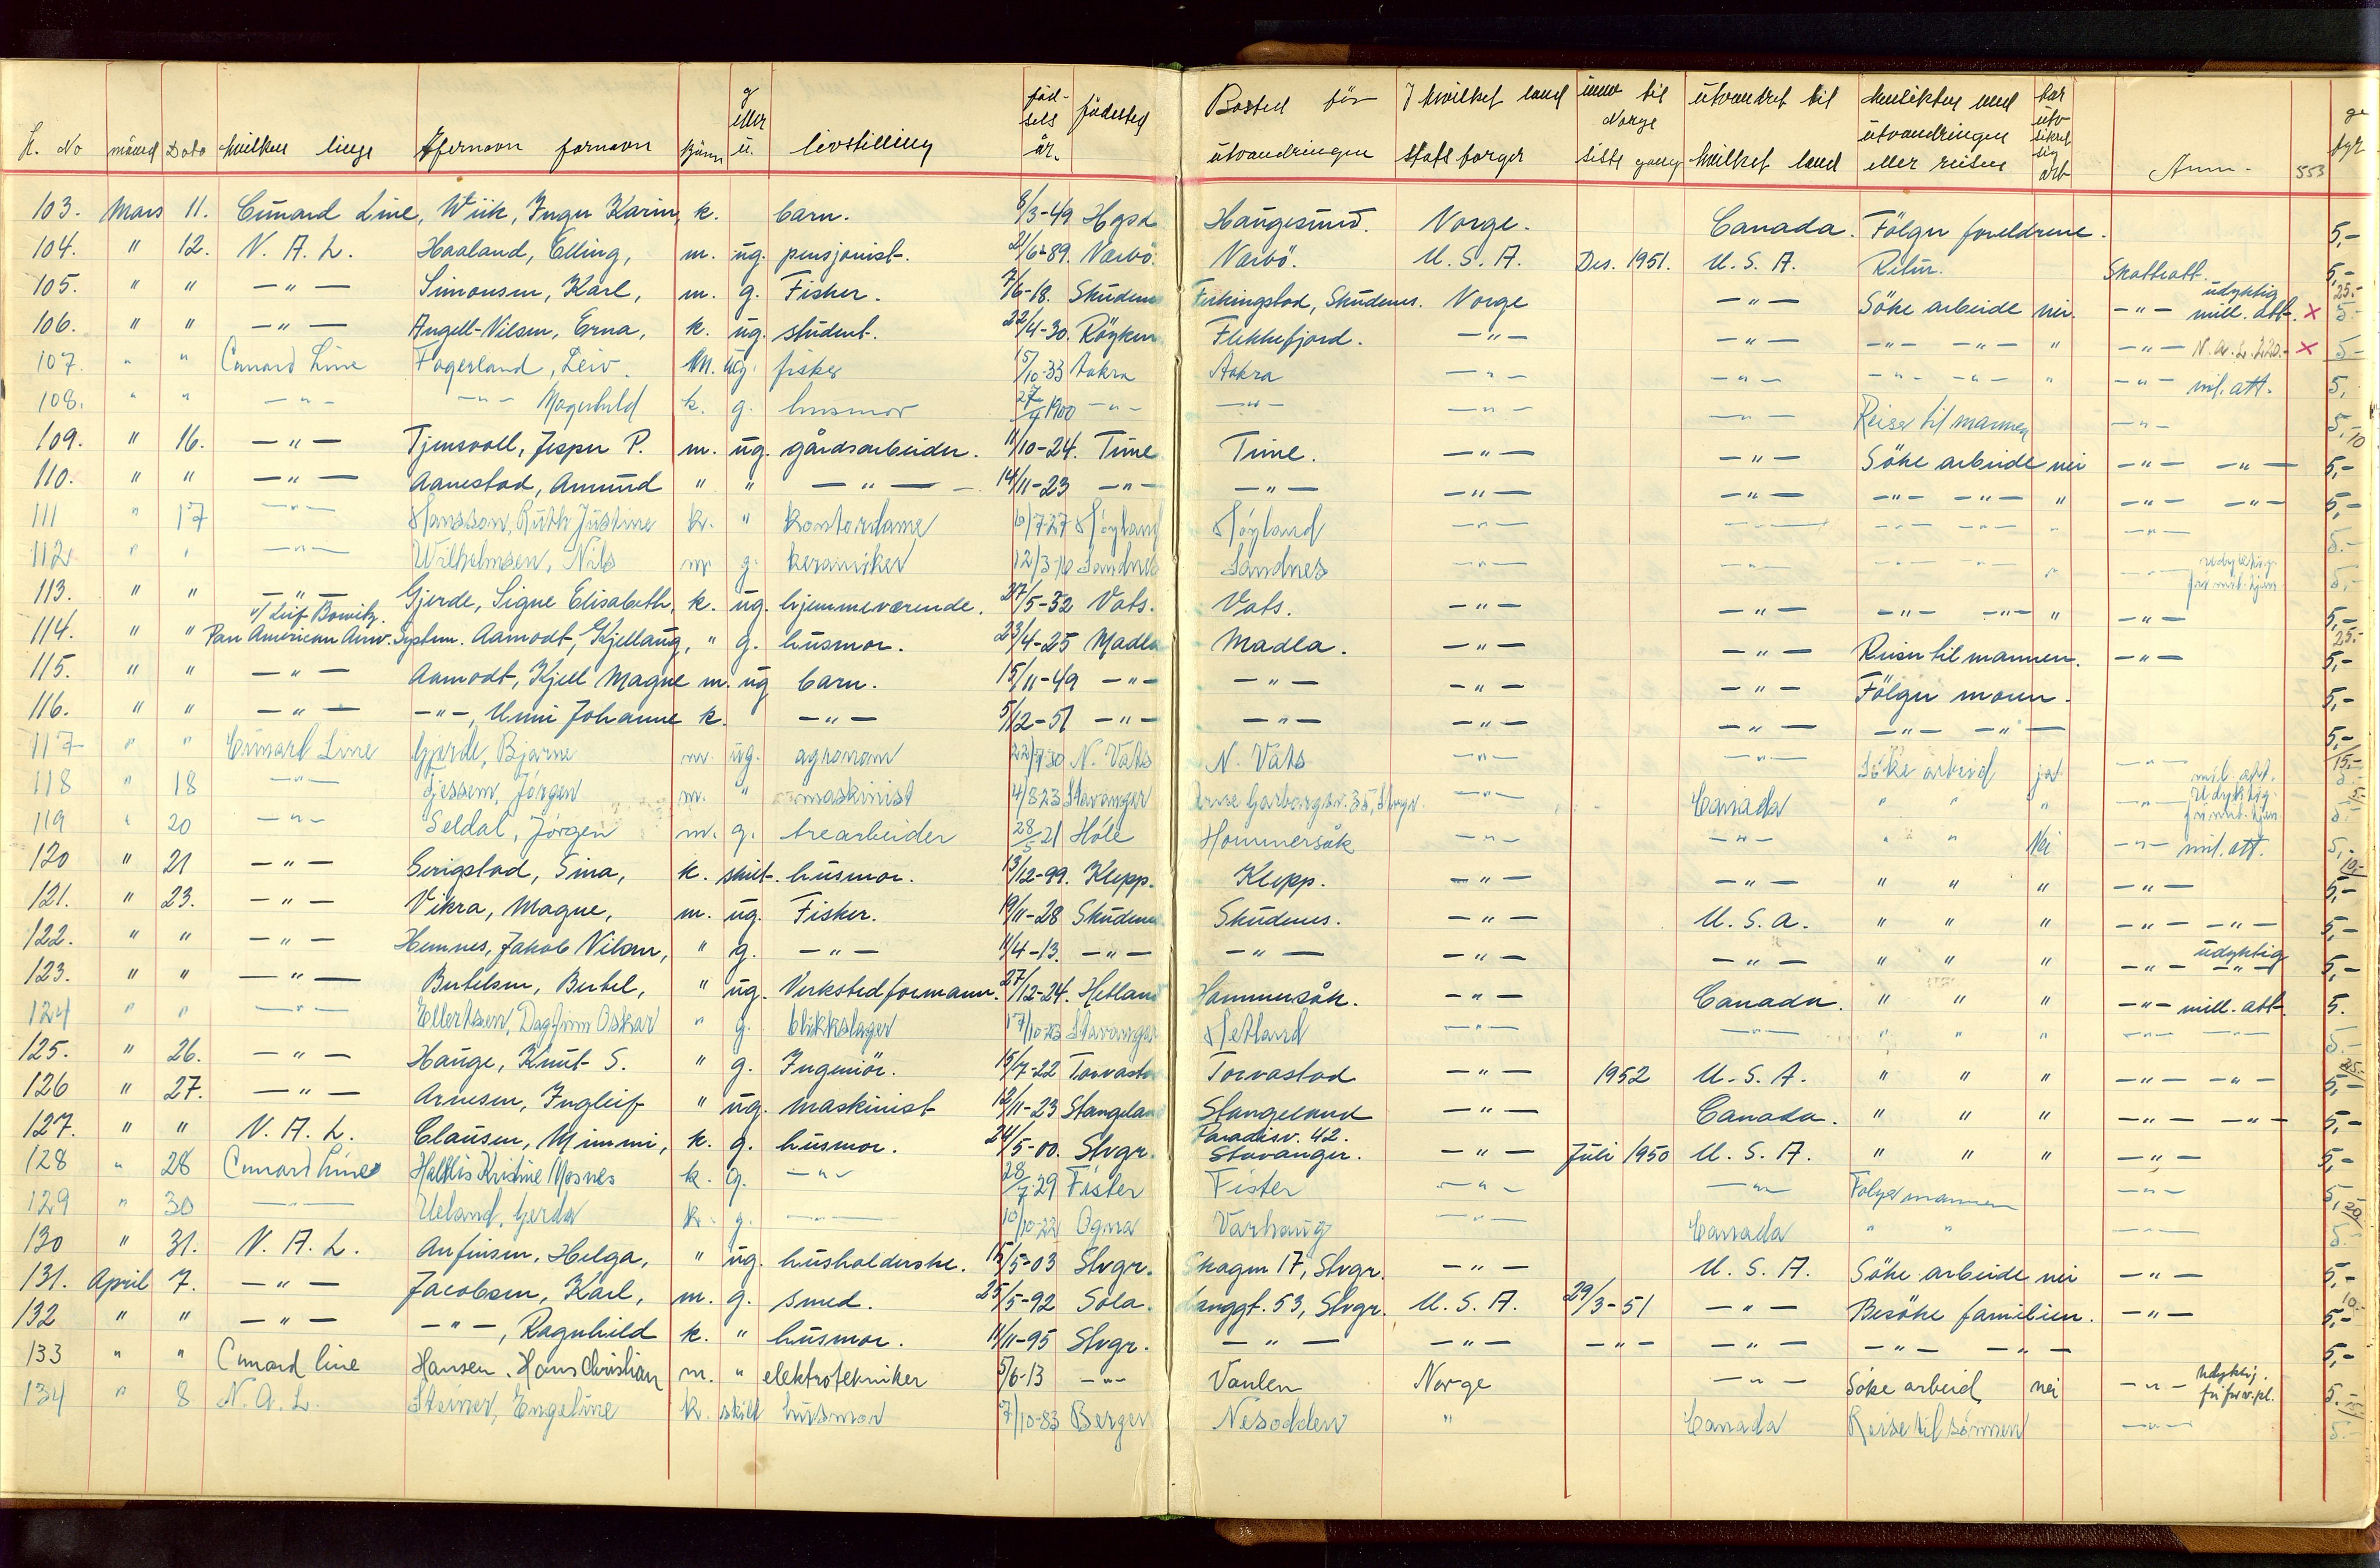 K. No måned Dato hvilken linje Efternavn fornavn kjønn g eller u. livstilling fødselsår. födested Bosted för utvandringen I hvilket land statsborger innv til Norge siste gang utvandret til hvilket land hensikten med utvandringen eller reisen har utv sikret sig arb Anm. 553 ge fyr
103. Mars 11. Cunard Line, Wiik, Inger Karin, k. barn. 6/3-49 Hgsd Haugesund. Norge. Canada. Fölger foreldrene. 5,-
104. " 12. N. A. L. Haaland, Elling, m. ug. pensjonist. 21/6-89. Nærbö. Nærbö. U. S. A. Des. 1951. U. S. A. Retur. Skatteatt. 5,-
105. " " -"- Simonsen, Karl, m. g. Fisker. 7/6-18. Skudenes Ferkingstad, Skudenes. Norge -"- Söke arbeide nei. -"- udyktig mill. att. x 25.- 5.-
106. " " -"- Angell-Nilsen, Erna, k. ug. student. 22/4-30. Röyken Flekkefjord. -"- -"- -"- -"- " -"- N.A.L. 220.- x 5-
107. " " Cunard Line Fagerland, Leiv. m. ug. fisker 15/10-33 Aakra Aakra -"- -"- -"- -"- " -"- mil. att. 5,
108. " " -"- -"- Magnhild k. g. husmor 27/4 1900 -"- -"- -"- -"- Reise til mannen -"- 5,- 10
109. " 16. -"- Tjensvoll, Jesper P. m. ug. gårdsarbeider. 11/10-24. Time Time. -"- -"- Söke arbeide nei -"- -"- 5,-
110. " " -"- Aanestad, Amund " " -"- 14/11-23 -"- -"- -"- -"- -"- -"- " -"- -"- 5,-
111 " 17 -"- Hansson, Ruth Justine k. " kontordame 6/7-27 Høyland Høyland -"- -"- -"- -"- " -"- 5.-
112 " " -"- Wilhelmsen, Nils m. g. keramiker 12/3-16 Sandnes Sandnes -"- -"- -"- -"- " -"- udyktig for mil. tjen. 5,-
113. " " -"- Gjerde, Signe Elisabeth, k. ug. hjemmeværende. 27/5-32 Vats. Vats. -"- -"- -"- -"- " -"- 5,-
114. " " v/ Leif Bowitz. Pan American Airw. System. Aamodt, Kjellaug, " g. husmor. 23/4-25 Madla Madla. -"- -"- Reiser til mannen. -"- 25.- 5,-
115. " " -"- Aamodt, Kjell Magne m. ug barn. 15/11-49 -"- -"- -"- -"- Fölger moren. 5,-
116. " " -"- -"-, Unni Johanne k. -"- 5/12-51 -"- -"- -"- -"- -"- -"- 5,-
117 " " Cunard Line Gjerde, Bjarne m. ug. agronom 22/7-30 N. Vats N. Vats -"- -"- Söke arbeid ja -"- mil. att. 15.- 5.-
118 " 18 -"- Tjessem, Jørgen m. " maskinist 4/8-23 Stavanger Arne Garborgsv. 35, Stvgr. -"- Canada " " " -"- Udyktig for mil. tjen. 5.-
119 " 20 -"- Seldal, Jörgen m. g. trearbeider 28/5 21 Höle Hommersåk -"- -"- " " Nei -"- mil. att. 5,-
120 " 21 -"- Serigstad, Sina, k. skilt. husmor. 13/12-99. Klepp. Klepp. -"- -"- " " " -"- 10.- 5,-
121. " 23. -"- Vikra, Magne, m. ug. Fisker. 19/11-28 Skudenes Skudenes. -"- U. S. A. " " " -"- -"- 5,-
122. " " -"- Hemnes, Jakob Nilsen, " g. -"- 11/4-13. -"- -"- -"- -"- " " " -"- udyktig -"- 5,-
123. " " -"- Bertelsen, Bertel, " ug. Verkstedformann. 27/12-24. Hetland Hommersåk. -"- Canada. " " " -"- mill. att 5.
124 " " -"- Ellertsen, Dagfinn Oskar " g. blikkslager 17/10-23 Stavanger Hetland -"- -"- " " " -"- -"- 5.-
125. " 26. -"- Hauge, Knut S. " g. Ingeniör. 15/7-22 Torvastad Torvastad -"- 1952 U. S. A. " " " -"- -"- 25.- 5,-
126 " 27. -"- Arnesen, Ingleif " ug. maskinist 12/11-23 Stangeland Stangeland -"- Canada. " " " -"- -"- 5,-
127. " " N. A. L. Clausen, Mimmi, k. g. husmor. 24/5-00. Stvgr. Paradisv. 42. Stavanger. -"- Juli 1950 U. S. A. " " " -"- 5,-
128 " 28 Cunard Line Halldis Kristine Mosnes k. g. -"- 28/7-29 Fister Fister -"- -"- Følge mannen -"- 5,-
129 " 30 -"- Ueland, Gerda k. g. -"- 10/10-22 Ogna Varhaug -"- Canada " " -"- 20 5.-
130 " 31. N. A. L. Anfinsen, Helga, " ug. husholderske. 15/5-03 Stvgr. Skagen 17, Stvgr. -"- U. S. A. Söke arbeide nei -"- 5,-
131. April 7. -"- Jacobsen, Karl, m. g. smed. 25/5-92 Sola. Langgt. 53, Stvgr. U. S. A. 29/3-51 -"- Besöke familien. -"- 10.- 5,-
132 " " -"- -"-, Ragnhild k. " husmor. 11/11-95 Stvgr. -"- -"- -"- -"- -"- -"- 5,-
133 " " Cunard line Hansen. Hans Christian m. " elektrotekniker 5/6-13 -"- Vaulen Norge -"- Söke arbeid nei -"- udyktig. fri for v.pl. 5.-
134 " 8 N. A. L. Steiner, Engeline k. skilt husmor 7/10-83 Bergen Nesodden " Canada Reise til sønnen -"- 5.-